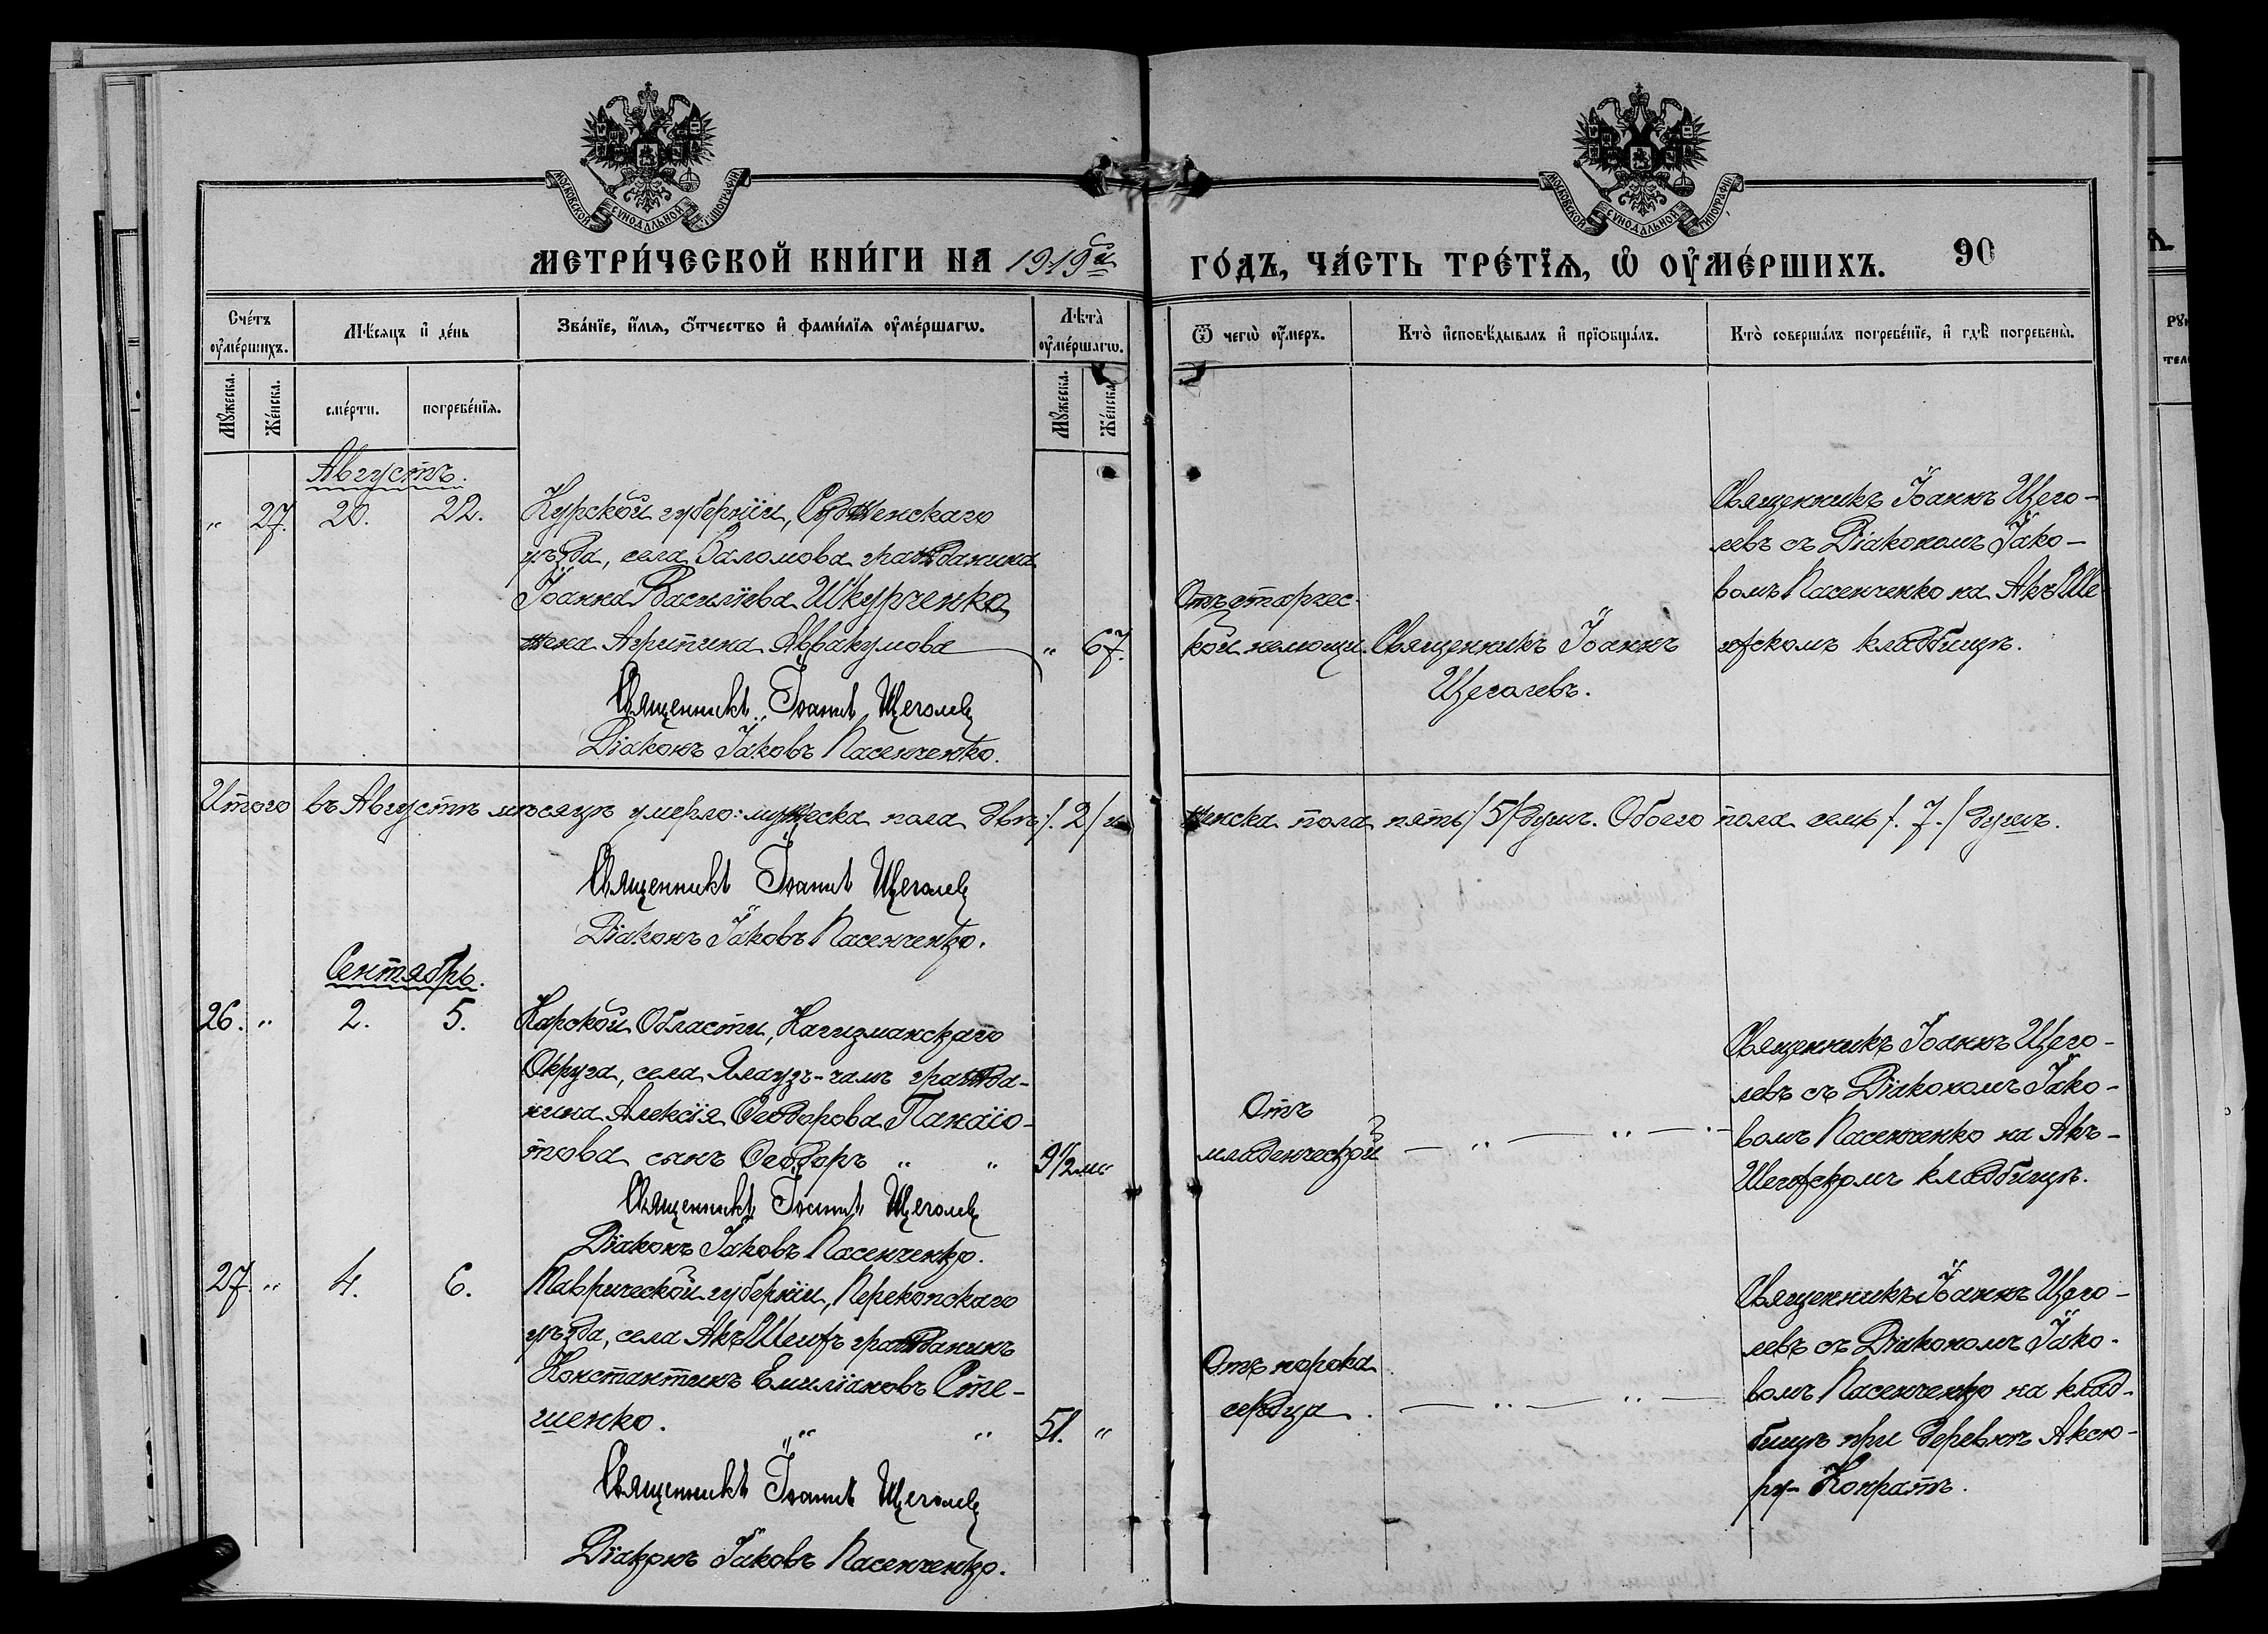 МОСКОВСКОЙ СУНОДАЛЬНОЙ ТИПОГРАФІИ
МОСКОВСКОЙ СУНОДАЛЬНОЙ ТИПОГРАФІИ
МЕТРИ́ЧЕСКОЙ КНИ́ГИ НА 1919й
ГО́ДЪ, ЧА́СТЬ ТРЕ́ТЇѦ, Ѽ ОУ҆МЕ́РШИХЪ. 90
Сче́тъ оу҆ме́ршихъ.
Мѣ́сяцъ и҆ де́нь
Зва́нїе, и҆́мѧ, ѻ҆́тчество и҆ фами́лїѧ оу҆ме́ршагѡ.
Лѣта̀ оу҆ме́ршагѡ.
Ѿ чегѡ̀ оу҆́меръ.
Кто̀ и҆сповѣ́дывалъ и҆ прїѻбща́лъ.
Кто̀ соверша́лъ погребе́нїе, и҆ гдѣ̀ погребены̀.
Мꙋ́жеска.
Же́нска.
сме́рти.
погребе́нїѧ.
Мꙋ́жеска.
Же́нска.
Августъ.
" 27. 20. 22.
Курской губерніи, Судженскаго
уѣзда, села Саломова гражданина
Іоанна Васильева Шкурченко
жена Агрипина Аввакумова " 67.
Священникъ Іоаннъ Щеголев
Діаконъ Іаковъ Пасенченко.
Отъ старчес-
кой немощи.
Священникъ Іоаннъ
Щеголевъ.
Священникъ Іоаннъ Щего-
левъ съ Діакономъ Іако-
вомъ Пасенченко на Акъ Ше-
ихскомъ кладбищѣ.
Итого въ Августѣ мѣсяцѣ умерло: мужеска пола двѣ /. 2/ и женска пола пять /5/ душъ. Обоего пола семь /. 7. / душъ.
Священникъ Іоаннъ Щеголев
Діаконъ Іаковъ Пасенченко.
Сентябрь.
26. " 2. 5.
Карской Области, Кагизманскаго
Округа, села Ялаузъ-чамъ гражда-
нина Алексія Ѳеодорова Панаіо-
това сынъ Ѳеодоръ " " 9½ м "
Священникъ Іоаннъ Щеголев
Діаконъ Іаковъ Пасенченко.
Отъ
младенческой
Священникъ Іоаннъ Щего-
левъ съ Діакономъ Іако-
вомъ Пасенченко на Акъ-
Шеихскомъ кладбищѣ.
27. " 4. 6.
Таврической губерніи, Перекопскаго
уѣзда, села Акъ Шеихъ гражданинъ
Константинъ Емиліановъ Сте-
шенко. " " 51. "
Священникъ Іоаннъ Щеголев
Діаконъ Іаковъ Пасенченко.
Отъ порока
сердца.
Священникъ Іоаннъ Щего-
левъ съ Діакономъ Іако-
вомъ Пасенченко на клад-
бищѣ при деревнѣ Аксю-
ру-Конратъ.